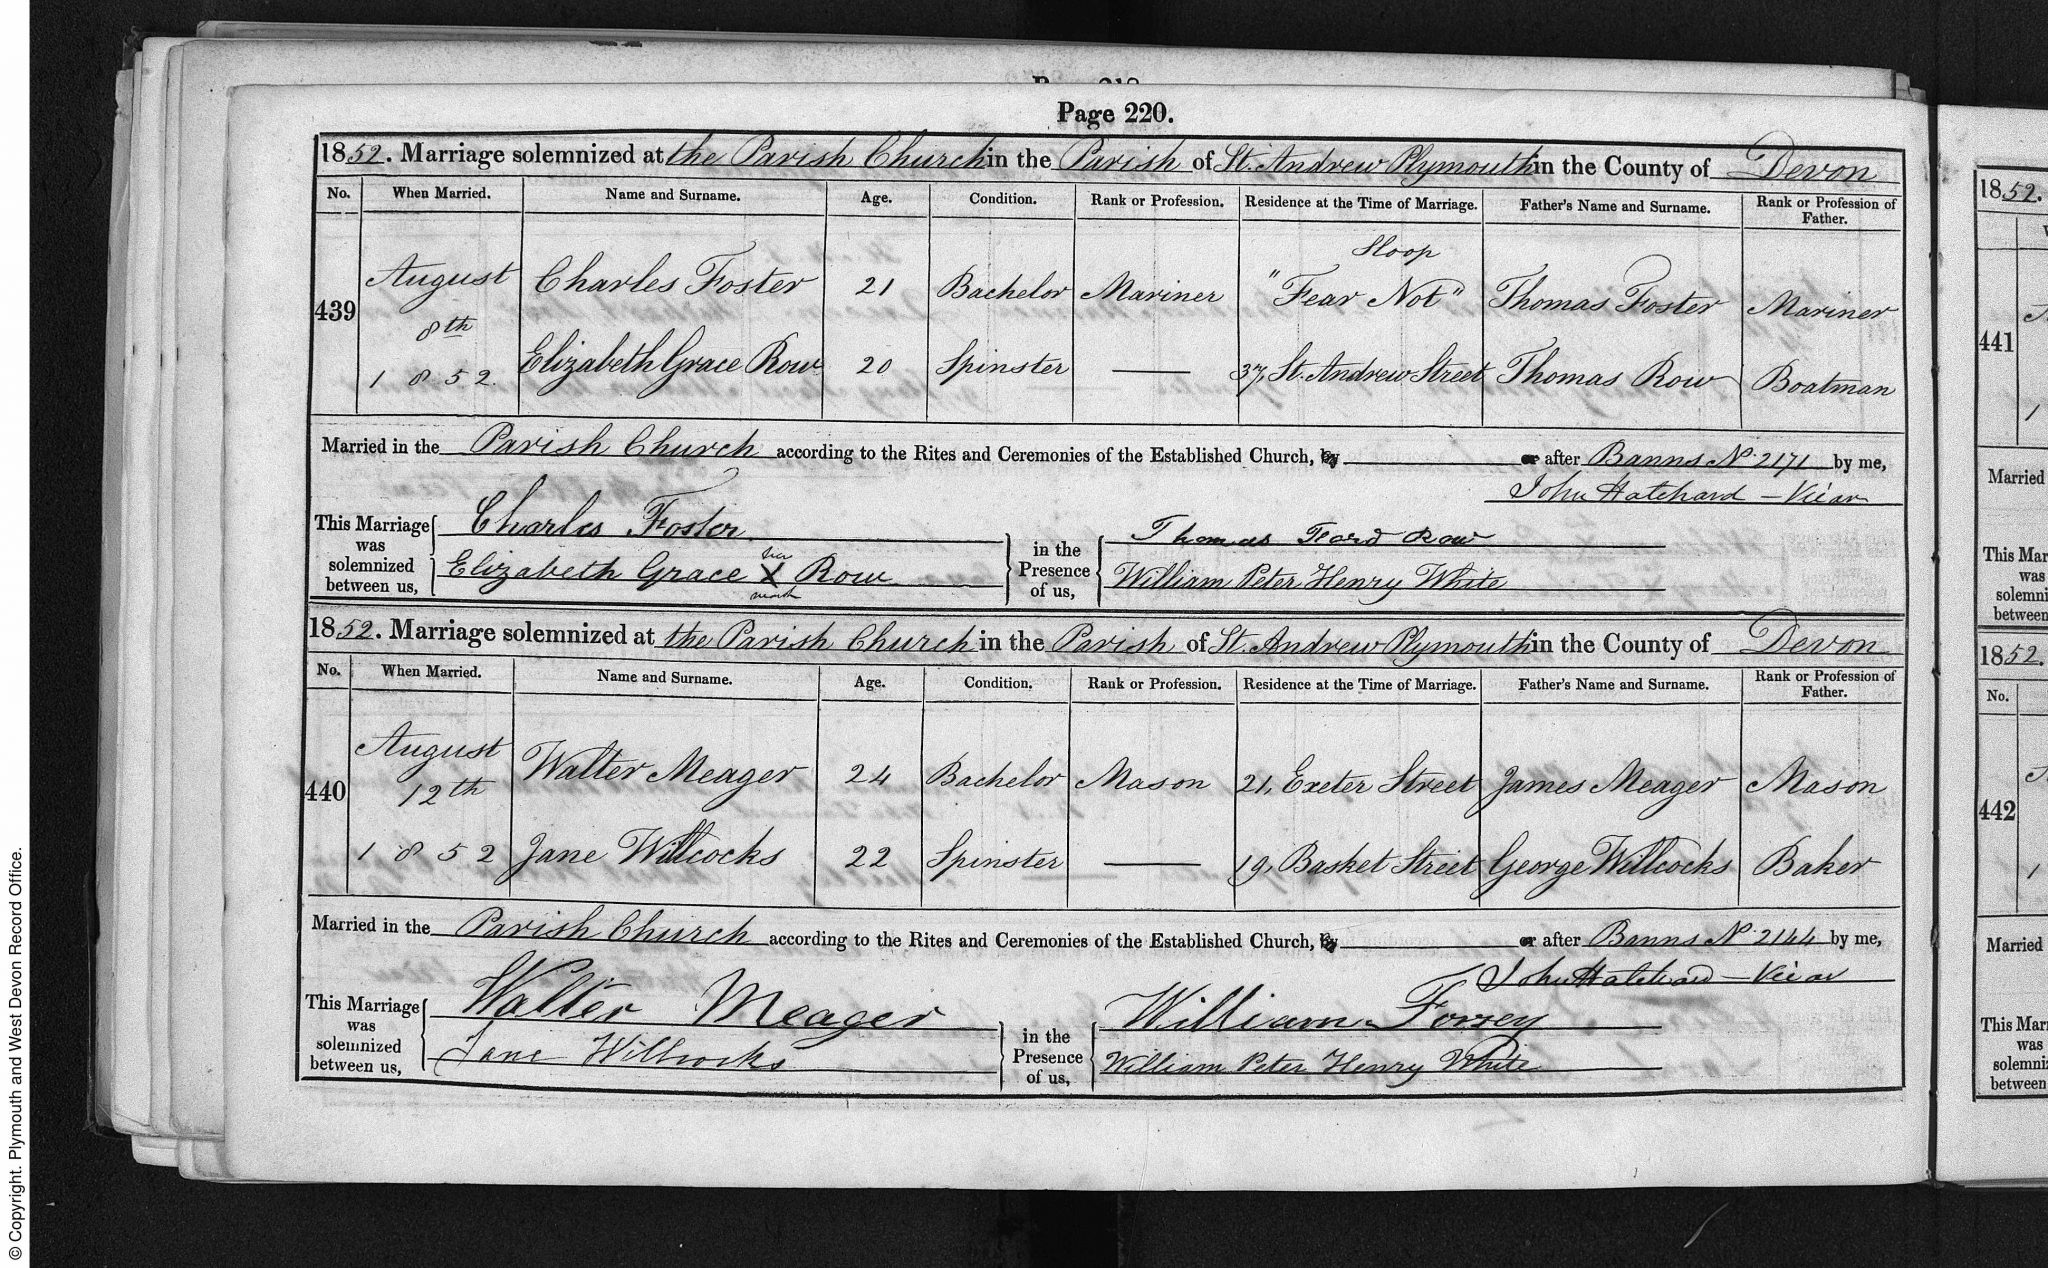 Page 220.
1852. Marriage solemnized at the Parish Church in the Parish of St. Andrew Plymouth in the County of Devon
No. When Married. Name and Surname. Age. Condition. Rank or Profession. Residence at the Time of Marriage. Father's Name and Surname. Rank or Profession of Father.
439 August 8th 1852 Charles Foster 21 Bachelor Mariner Sloop "Fear Not" Thomas Foster Mariner
Elizabeth Grace Row 20 Spinster 37, St. Andrew Street Thomas Row Boatman
Married in the Parish Church according to the Rites and Ceremonies of the Established Church, by or after Banns No. 2171 by me,
John Hatchard - Vicar
This Marriage was solemnized between us, Charles Foster
Elizabeth Grace X Row her mark
in the Presence of us, Thomas Ford Row
William Peter Henry White
1852. Marriage solemnized at the Parish Church in the Parish of St. Andrew Plymouth in the County of Devon
No. When Married. Name and Surname. Age. Condition. Rank or Profession. Residence at the Time of Marriage. Father's Name and Surname. Rank or Profession of Father.
440 August 12th 1852 Walter Meager 24 Bachelor Mason 21, Exeter Street James Meager Mason
Jane Willcocks 22 Spinster 19, Basket Street George Willcocks Baker
Married in the Parish Church according to the Rites and Ceremonies of the Established Church, by or after Banns No. 2144 by me,
John Hatchard - Vicar
This Marriage was solemnized between us, Walter Meager
Jane Willcocks
in the Presence of us, William Forsey
William Peter Henry White
1852.
441
Married
This Mar
was
solemni
between
1852.
No.
442
Married
This Mar
was
solemni
between
© Copyright. Plymouth and West Devon Record Office.